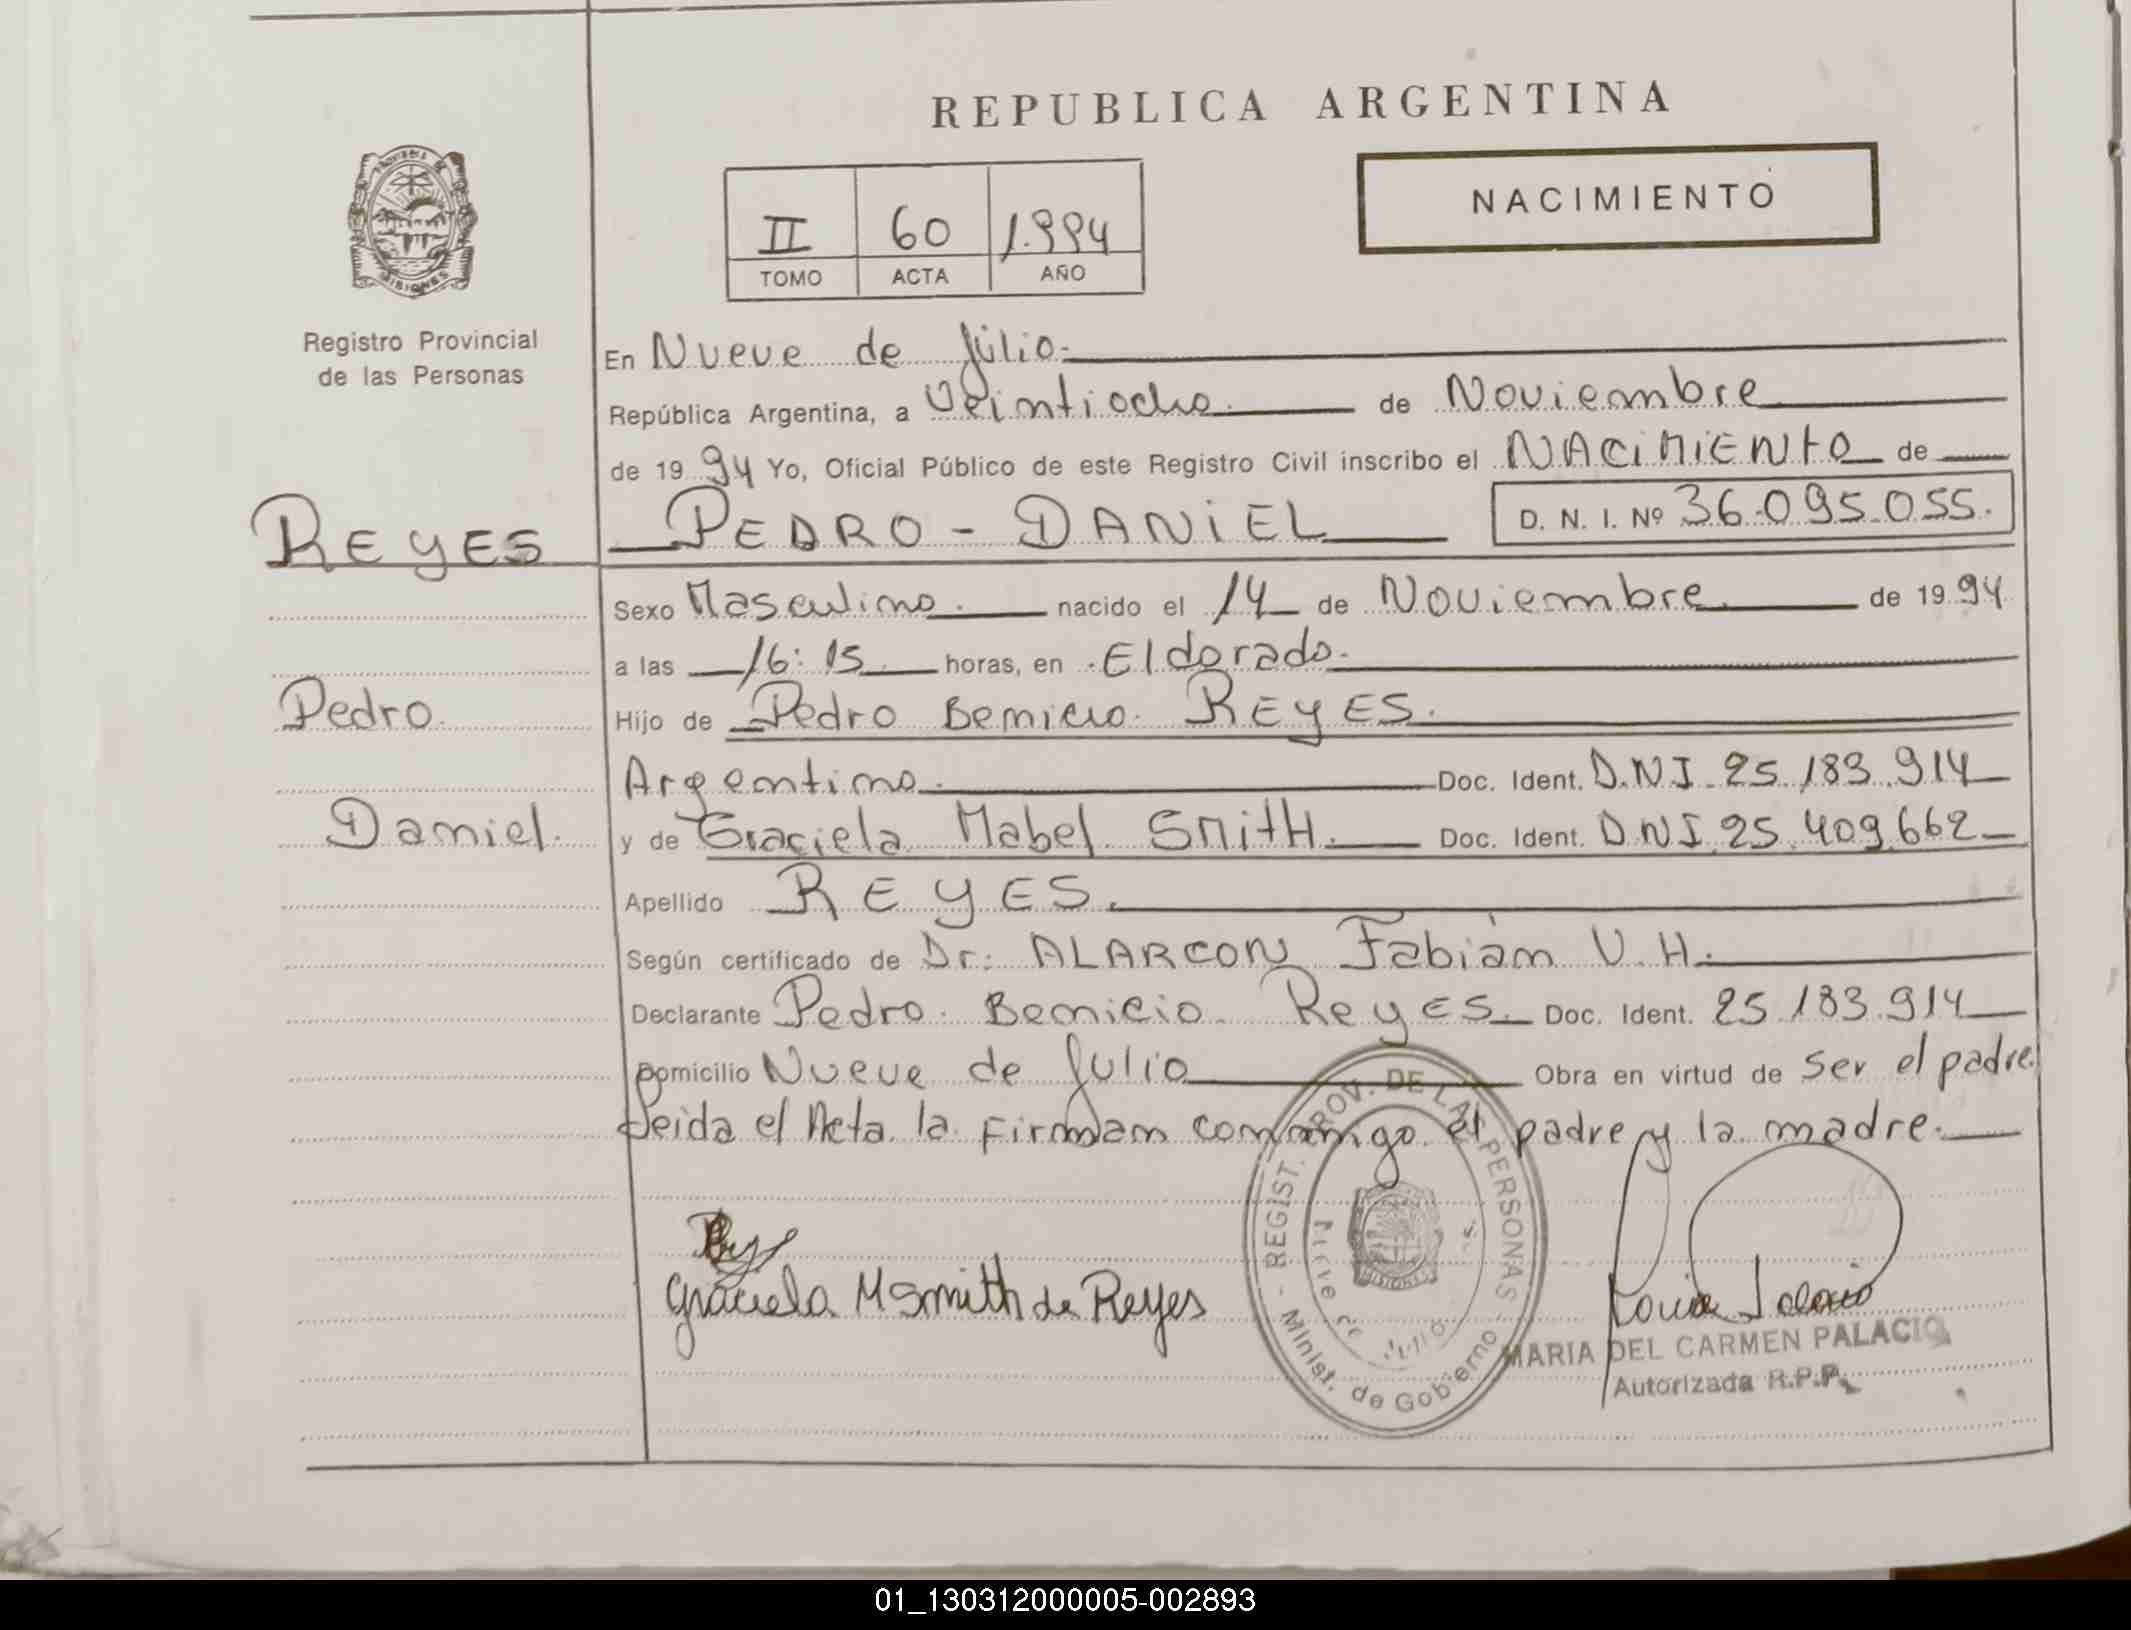 REPUBLICA ARGENTINA
NACIMIENTO
II 60 1.994
TOMO ACTA AÑO
PROVINCIA DE
MISIONES
Registro Provincial
de las Personas
En Nueve de Julio.
República Argentina, a Veintiocho. de Noviembre
de 19 94 Yo, Oficial Público de este Registro Civil inscribo el NACIMIENTO de
REYES PEDRO - DANIEL D. N. I. Nº 36.095.055.
Sexo Masculino. nacido el 14 de Noviembre. de 19 94
a las 16:15 horas, en Eldorado.
Pedro Hijo de Pedro Benicio. REYES.
Argentino. Doc. Ident. D.N.I. 25.183.914
Daniel. y de Graciela Mabel SMitH. Doc. Ident. D.N.I. 25.409.662
Apellido REYES.
Según certificado de Dr: ALARCON Fabián V.H.
Declarante Pedro. Benicio. ReyES. Doc. Ident. 25.183.914
Domicilio Nueve de Julio Obra en virtud de Ser el padre.
Leida el Acta la Firman conmigo el padre y la madre.
Graciela M Smith de Reyes
REGIST. PROV. DE LAS PERSONAS
Minist. de Gobierno
Nueve de Julio
MISIONES
MARIA DEL CARMEN PALACIO
Autorizada R.P.P.
01_130312000005-002893